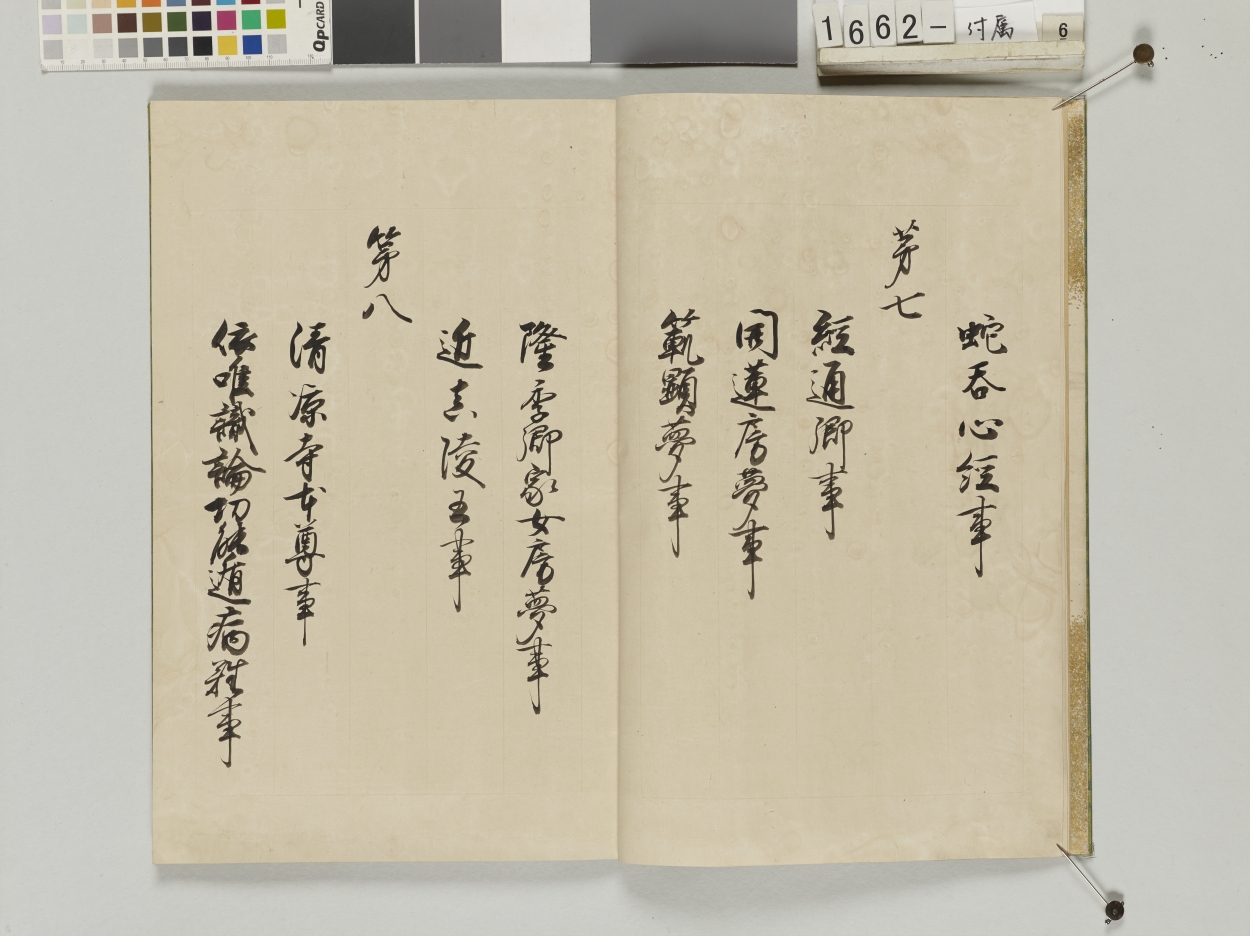 QPCARD
1662-付属 6
蛇呑心経事
第七
経通卿事
開蓮房夢事
範顕夢事
隆季卿家女房夢事
近真陵王事
第八
清凉寺本尊事
依唯識論功能遁病難事